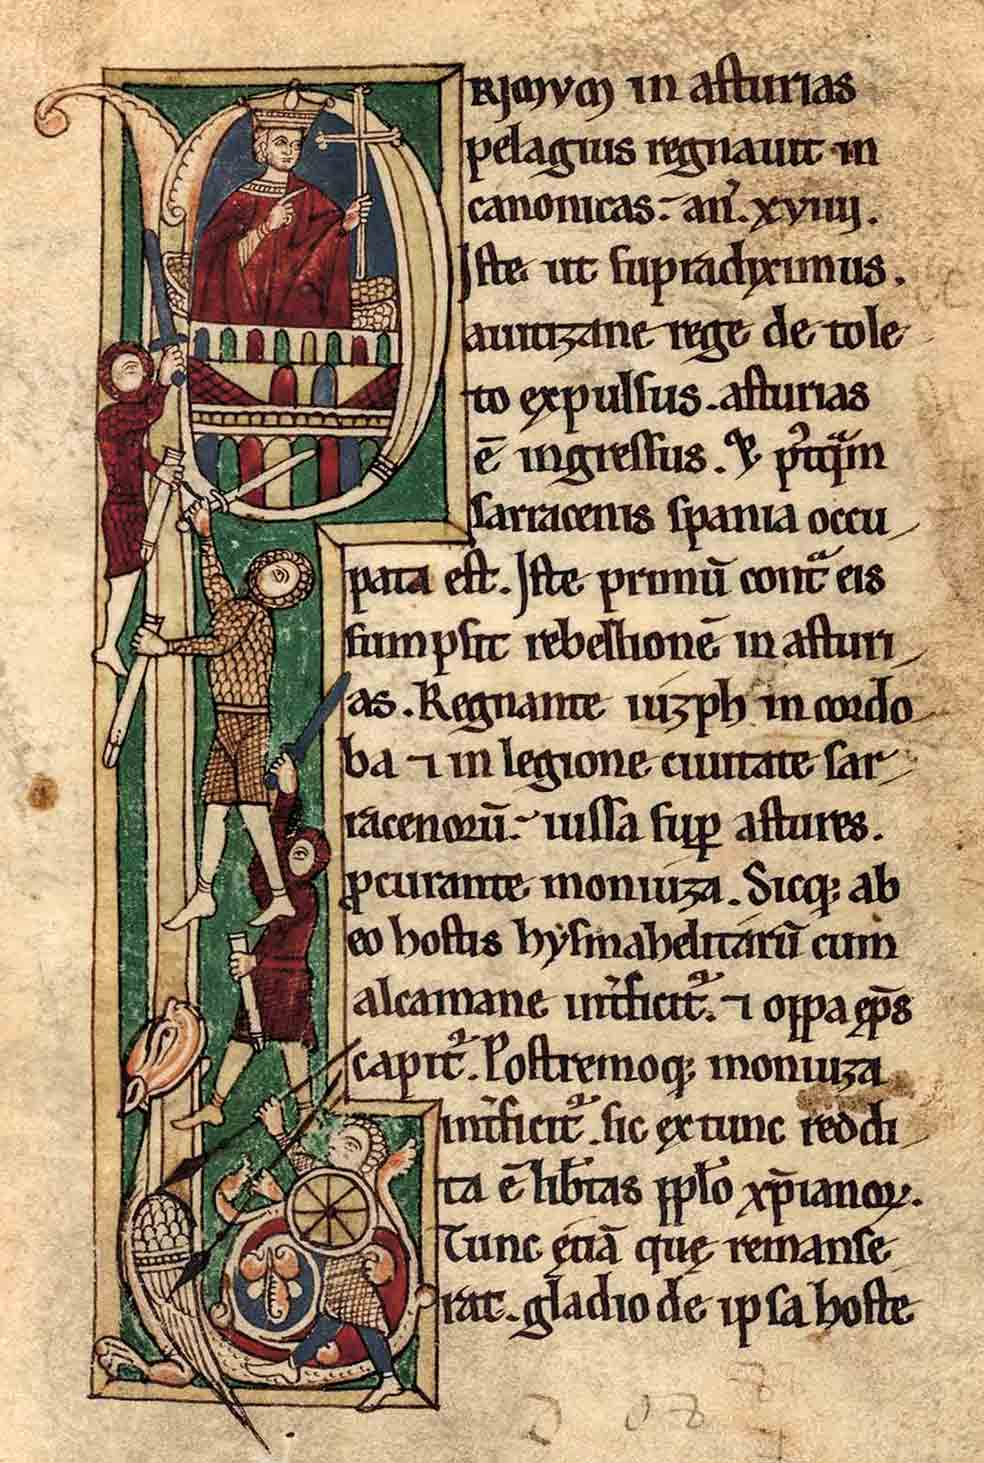 PRIMVM in asturias
pelagius regnauit in
canonicas. an̄. xviiij.
Iste ut supradiximus.
auitizane rege de tole
to expulsus. asturias
ē ingressus. Et p̉tq̄m
sarracenis spania occu
pata est. Iste primū contͣ eis
sumpsit rebellionē in asturi
as. Regnante iuzph in cordo
ba ⁊ in legione ciuitate sar
racenorū. iussa suꝑ astures.
ꝓcurante moniuza. Sicq; ab
eo hostis hysmahelitarū cum
alcamane int̄ficit᷑. ⁊ oppa ep̄s
capit᷑. Postremoq; moniuza
int̄ficit᷑. sic ex tunc reddi
ta ē lib̄tas pp̄lo xp̄ianoꝝ.
Tunc etiā que remanse
rat. gladio de ipsa hoste